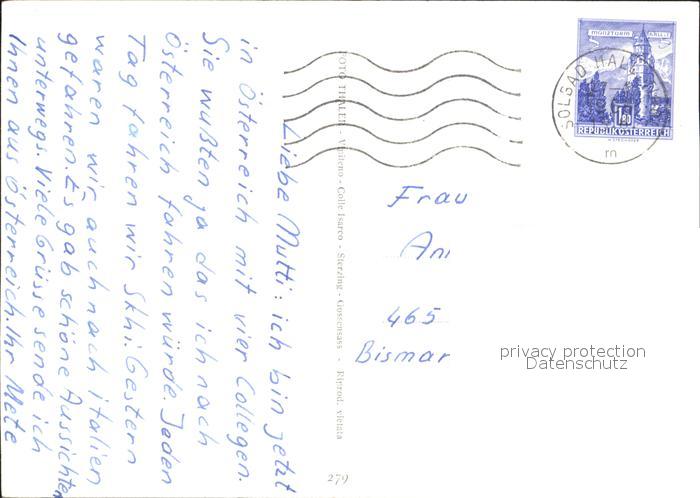 Liebe Mutti: ich bin jetzt
in Österreich mit vier Collegen.
Sie wußten ja das ich nach
Österreich fahren würde. Jeden
Tag fahren wir Skhi. Gestern
waren wir auch nach italien
gefahren. Es gab schöne Aussichten
unterwegs. Viele Grüsse sende ich
Ihnen aus Österreich. Ihr Mete
FOTO THALER - Vipiteno - Colle Isarco - Sterzing - Gossensass - Riprod. vietata
279
MÜNZTURM HALL i.T.
1.80
REPUBLIK ÖSTERREICH
SOLBAD HALL
m
Frau
An
465
Bismar
privacy protection
Datenschutz